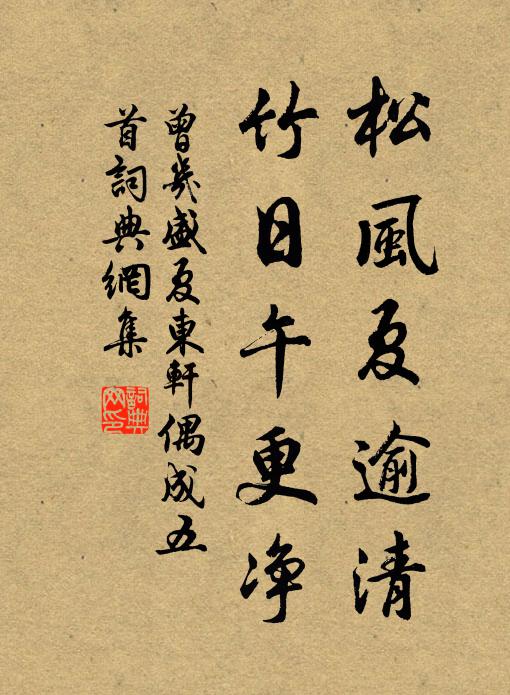 松風夏逾清
竹日午更净
曾幾盛夏東軒偶成五
首詞典網集
詞典
网印